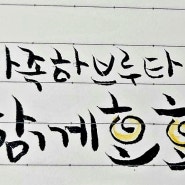 가족하브루타
함께흐흐